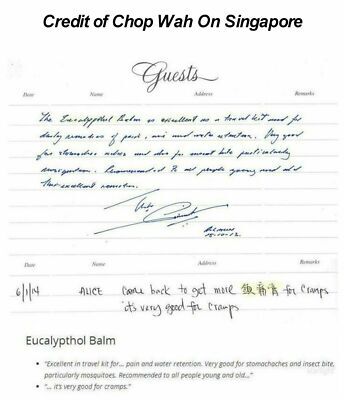 Credit of Chop Wah On Singapore
Guests
Date Name Address Remarks
The Eucalypthol Balm is excellent as a travel kit used for
daily remedies of pain, and water retention. Very good
for stomaches aches and also for insect bite particularly
mosquitoes. Recommended to all people young and old
this excellent remedies.
15-10-12
Date Name Address Remarks
6/1/14 ALICE Come back to get more for cramps
it's very good for cramps
Eucalypthol Balm
• "Excellent in travel kit for... pain and water retention. Very good for stomachaches and insect bite,
particularly mosquitoes. Recommended to all people young and old..."
• "... it's very good for cramps."